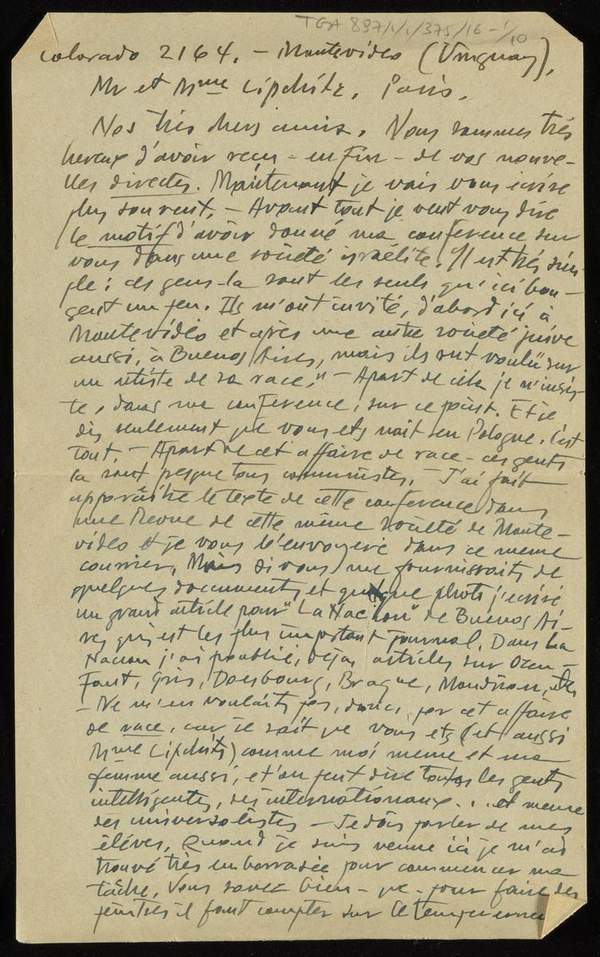 TGA 897/1/1/375/16-1/10
Colorado 2164. – Montevideo (Uruguay),
Mr et Mme Lipchitz. Paris.
Nos très chers amis. Nous sommes très
hereux d'avoir reçu – enfin – de vos nouve-
lles directes. Maintenant je vais vous ecrire
plus souvent. – Avant tout je veut vous dire
le motif d'avoir donné ma conference sur
vous dans une société israélite. Il est très sim-
ple: ces gens-la sont les seuls qui ici bou-
gent un peu. Ils m'ont invité, d'abord ici à
Montevideo et après une autre société juive
aussi, a Buenos Aires, mais ils ont voulu "sur
un artiste de sa race." – Apart de cela je n'insis-
te, dans ma conference, sur ce point. Et je
dis seulement que vous ets nait en Pologne. C'est
tout. – Apart de cet affaire de race – ces gents
la sont presque tous comunistes. – J'ai fait
apparaitre le texte de cette conference dans
une Revue de cette même société de Monte-
video et je vous l'envoyere dans ce meme
courrier. Mais si vous me fournissaits de
quelques documents et quelque photo j'ecrire
un grand article pour "La Nacion" de Buenos Ai-
res qui est les plus important journal. Dans La
Nacion j'ai poublié, dejas, articles sur Ozen-
fant, Gris, Doesbourg, Braque, Mondrian, etc
– Ne m'en voulaits pas, donc, par cet affaire
de race, car je sait que vous ets (et aussi
Mme Lipchitz) comme moi meme et ma
femme aussi, et'on peut dire toutes les gents
intelligentes, des internationaux... et meme
des universalistes – Je dois parler de mes
élèves. Quand je suis venue ici je m'ai
trouvé très embarrasée pour commencer ma
tâche. Vous savez bien – que – pour faire des
peintres il faut compter sur le temps